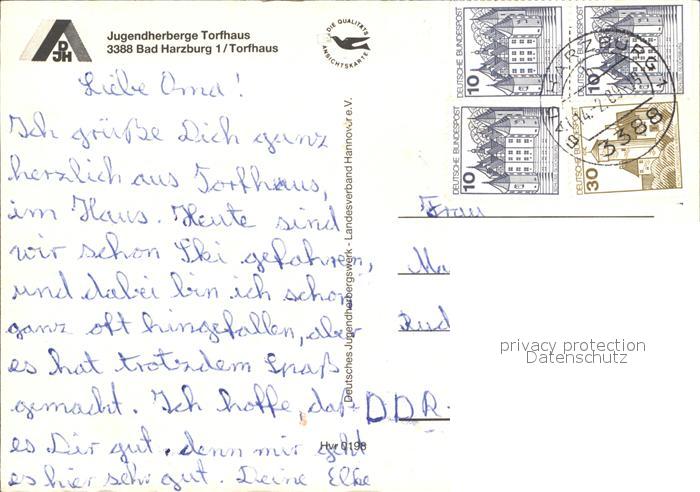 DJH
Jugendherberge Torfhaus
3388 Bad Harzburg 1/Torfhaus
DIE QUALITÄTS
ANSICHTSKARTE
Liebe Oma!
Ich grüße Dich ganz
herzlich aus Torfhaus,
im Haus. Heute sind
wir schon Ski gefahren,
und dabei bin ich schon
ganz oft hingefallen, aber
es hat trotzdem Spaß
gemacht. Ich hoffe, daß
es Dir gut, denn mir geht
es hier sehr gut. Deine Elke
Deutsches Jugendherbergswerk - Landesverband Hannover e.V.
Hvr 0198
DEUTSCHE BUNDESPOST
10
DEUTSCHE BUNDESPOST
10
DEUTSCHE BUNDESPOST
10
DEUTSCHE BUNDESPOST
30
BAD HARZBURG 1
3388
Frau
Ma
Rud
DDR-
privacy protection
Datenschutz